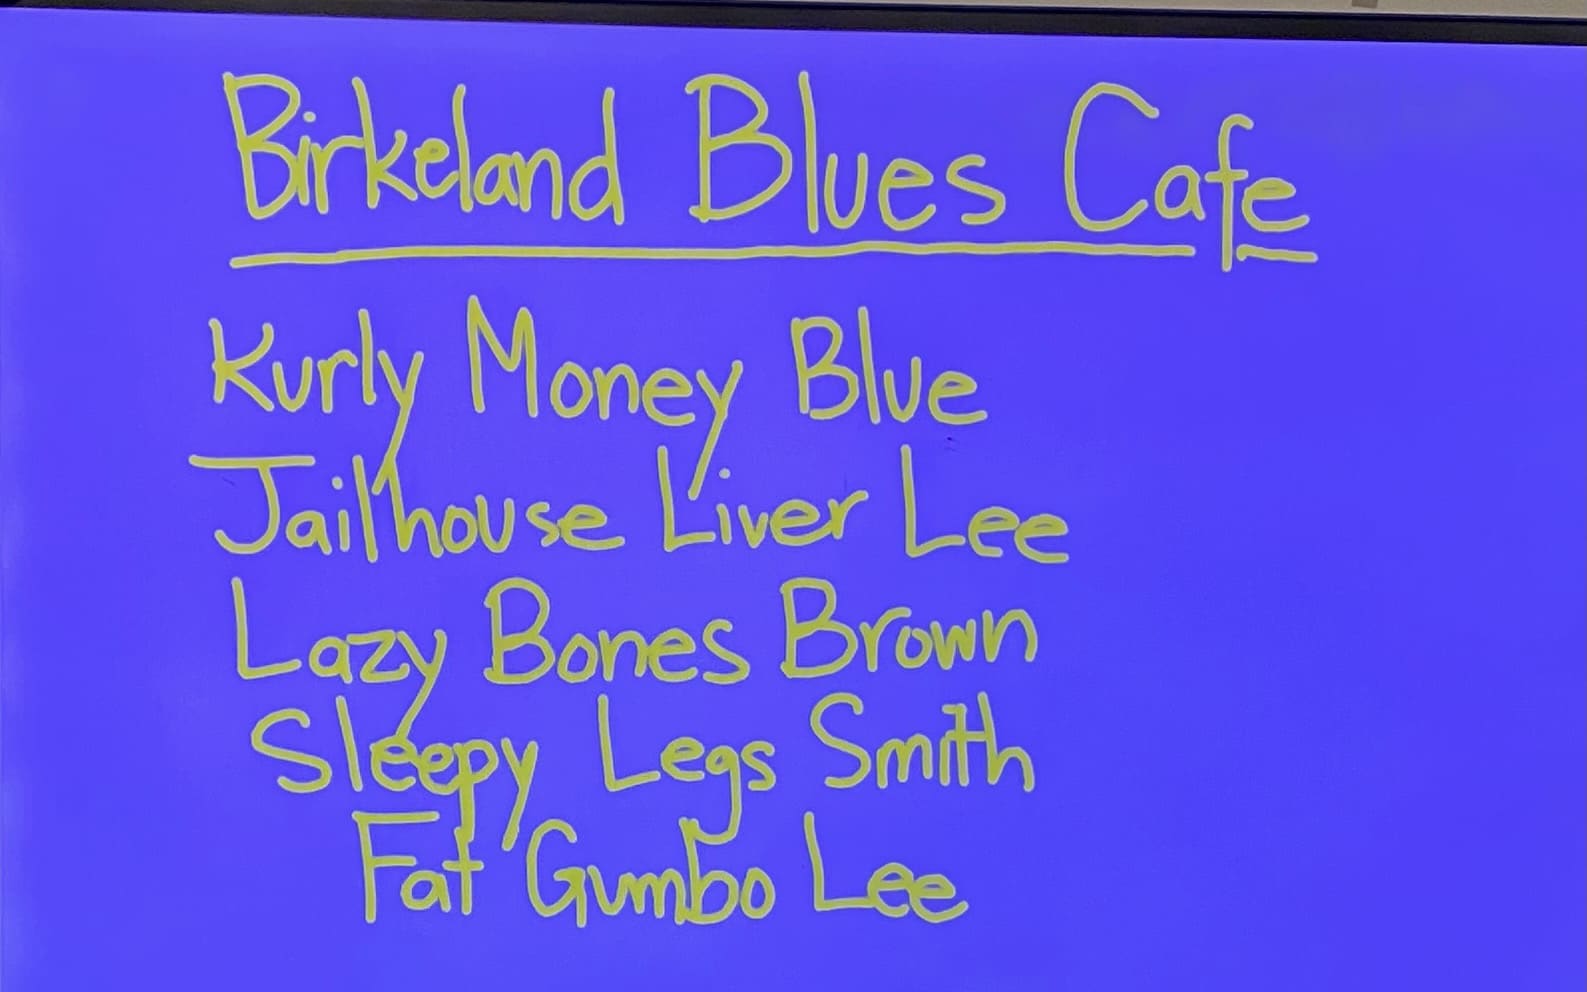 Birkeland Blues Cafe
Kurly Money Blue
Jailhouse Liver Lee
Lazy Bones Brown
Sleepy Legs Smith
Fat Gumbo Lee